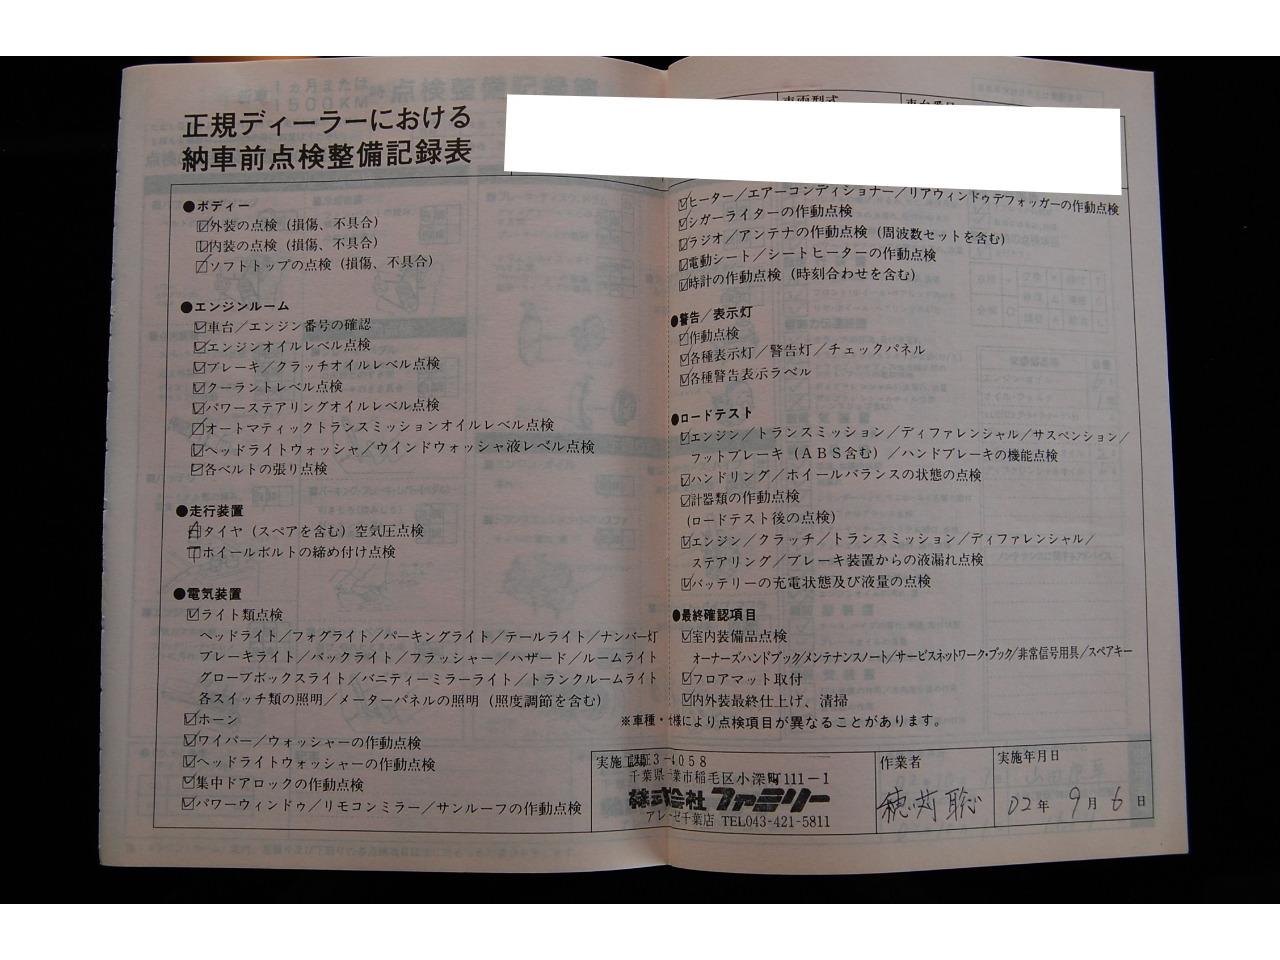 正規ディーラーにおける
納車前点検整備記録表
●ボディー
外装の点検（損傷、不具合）
内装の点検（損傷、不具合）
ソフトトップの点検（損傷、不具合）
●エンジンルーム
車台／エンジン番号の確認
エンジンオイルレベル点検
ブレーキ／クラッチオイルレベル点検
クーラントレベル点検
パワーステアリングオイルレベル点検
オートマティックトランスミッションオイルレベル点検
ヘッドライトウォッシャ／ウインドウォッシャ液レベル点検
各ベルトの張り点検
●走行装置
タイヤ（スペアを含む）空気圧点検
ホイールボルトの締め付け点検
●電気装置
ライト類点検
ヘッドライト／フォグライト／パーキングライト／テールライト／ナンバー灯
ブレーキライト／バックライト／フラッシャー／ハザード／ルームライト
グローブボックスライト／バニティーミラーライト／トランクルームライト
各スイッチ類の照明／メーターパネルの照明（照度調節を含む）
ホーン
ワイパー／ウォッシャーの作動点検
ヘッドライトウォッシャーの作動点検
集中ドアロックの作動点検
パワーウィンドゥ／リモコンミラー／サンルーフの作動点検
車両型式
車台番号
ヒーター／エアーコンディショナー／リアウィンドゥデフォッガーの作動点検
シガーライターの作動点検
ラジオ／アンテナの作動点検（周波数セットを含む）
電動シート／シートヒーターの作動点検
時計の作動点検（時刻合わせを含む）
●警告／表示灯
作動点検
各種表示灯／警告灯／チェックパネル
各種警告表示ラベル
●ロードテスト
エンジン／トランスミッション／ディファレンシャル／サスペンション／
フットブレーキ（ＡＢＳ含む）／ハンドブレーキの機能点検
ハンドリング／ホイールバランスの状態の点検
計器類の作動点検
（ロードテスト後の点検）
エンジン／クラッチ／トランスミッション／ディファレンシャル／
ステアリング／ブレーキ装置からの液漏れ点検
バッテリーの充電状態及び液量の点検
●最終確認項目
室内装備品点検
オーナーズハンドブック／メンテナンスノート／サービスネットワーク・ブック／非常信号用具／スペアキー
フロアマット取付
内外装最終仕上げ、清掃
※車種・仕様により点検項目が異なることがあります。
実施工場
認証3-4058
千葉県千葉市稲毛区小深町111－1
株式会社ファミリー
アレーゼ千葉店 TEL043-421-5811
作業者
実施年月日
02年 9月 6日